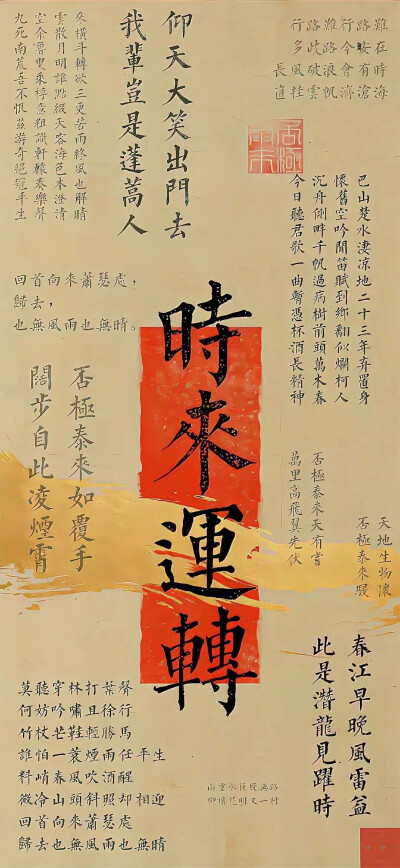 行路難行路難
多歧路今安在
長風破浪會有時
直挂雲帆濟滄海
仰天大笑出門去
我輩豈是蓬蒿人
參橫斗轉欲三更苦雨終風也解晴
雲散月明誰點綴天容海色本澄清
空余魯叟乘桴意粗識軒轅奏樂聲
九死南荒吾不恨茲游奇絕冠平生
巴山楚水淒涼地二十三年弃置身
懷舊空吟聞笛賦到鄉翻似爛柯人
沉舟側畔千帆過病樹前頭萬木春
今日聽君歌一曲暫憑杯酒長精神
回首向來蕭瑟處,
歸去,
也無風雨也無晴。
時來運轉
否極泰來如覆手
闊步自此凌煙霄
否極泰來天有嘗
萬里高飛翼先伏
天地生物濃
否極泰來暖
春江早晚風雷益
此是潛龍見躍時
莫聽穿林打葉聲
何妨吟嘯且徐行
竹杖芒鞋輕勝馬
誰怕一蓑煙雨任平生
料峭春風吹酒醒
微冷山頭斜照却相迎
回首向來蕭瑟處
歸去也無風雨也無晴
山重水復疑無路
柳暗花明又一村